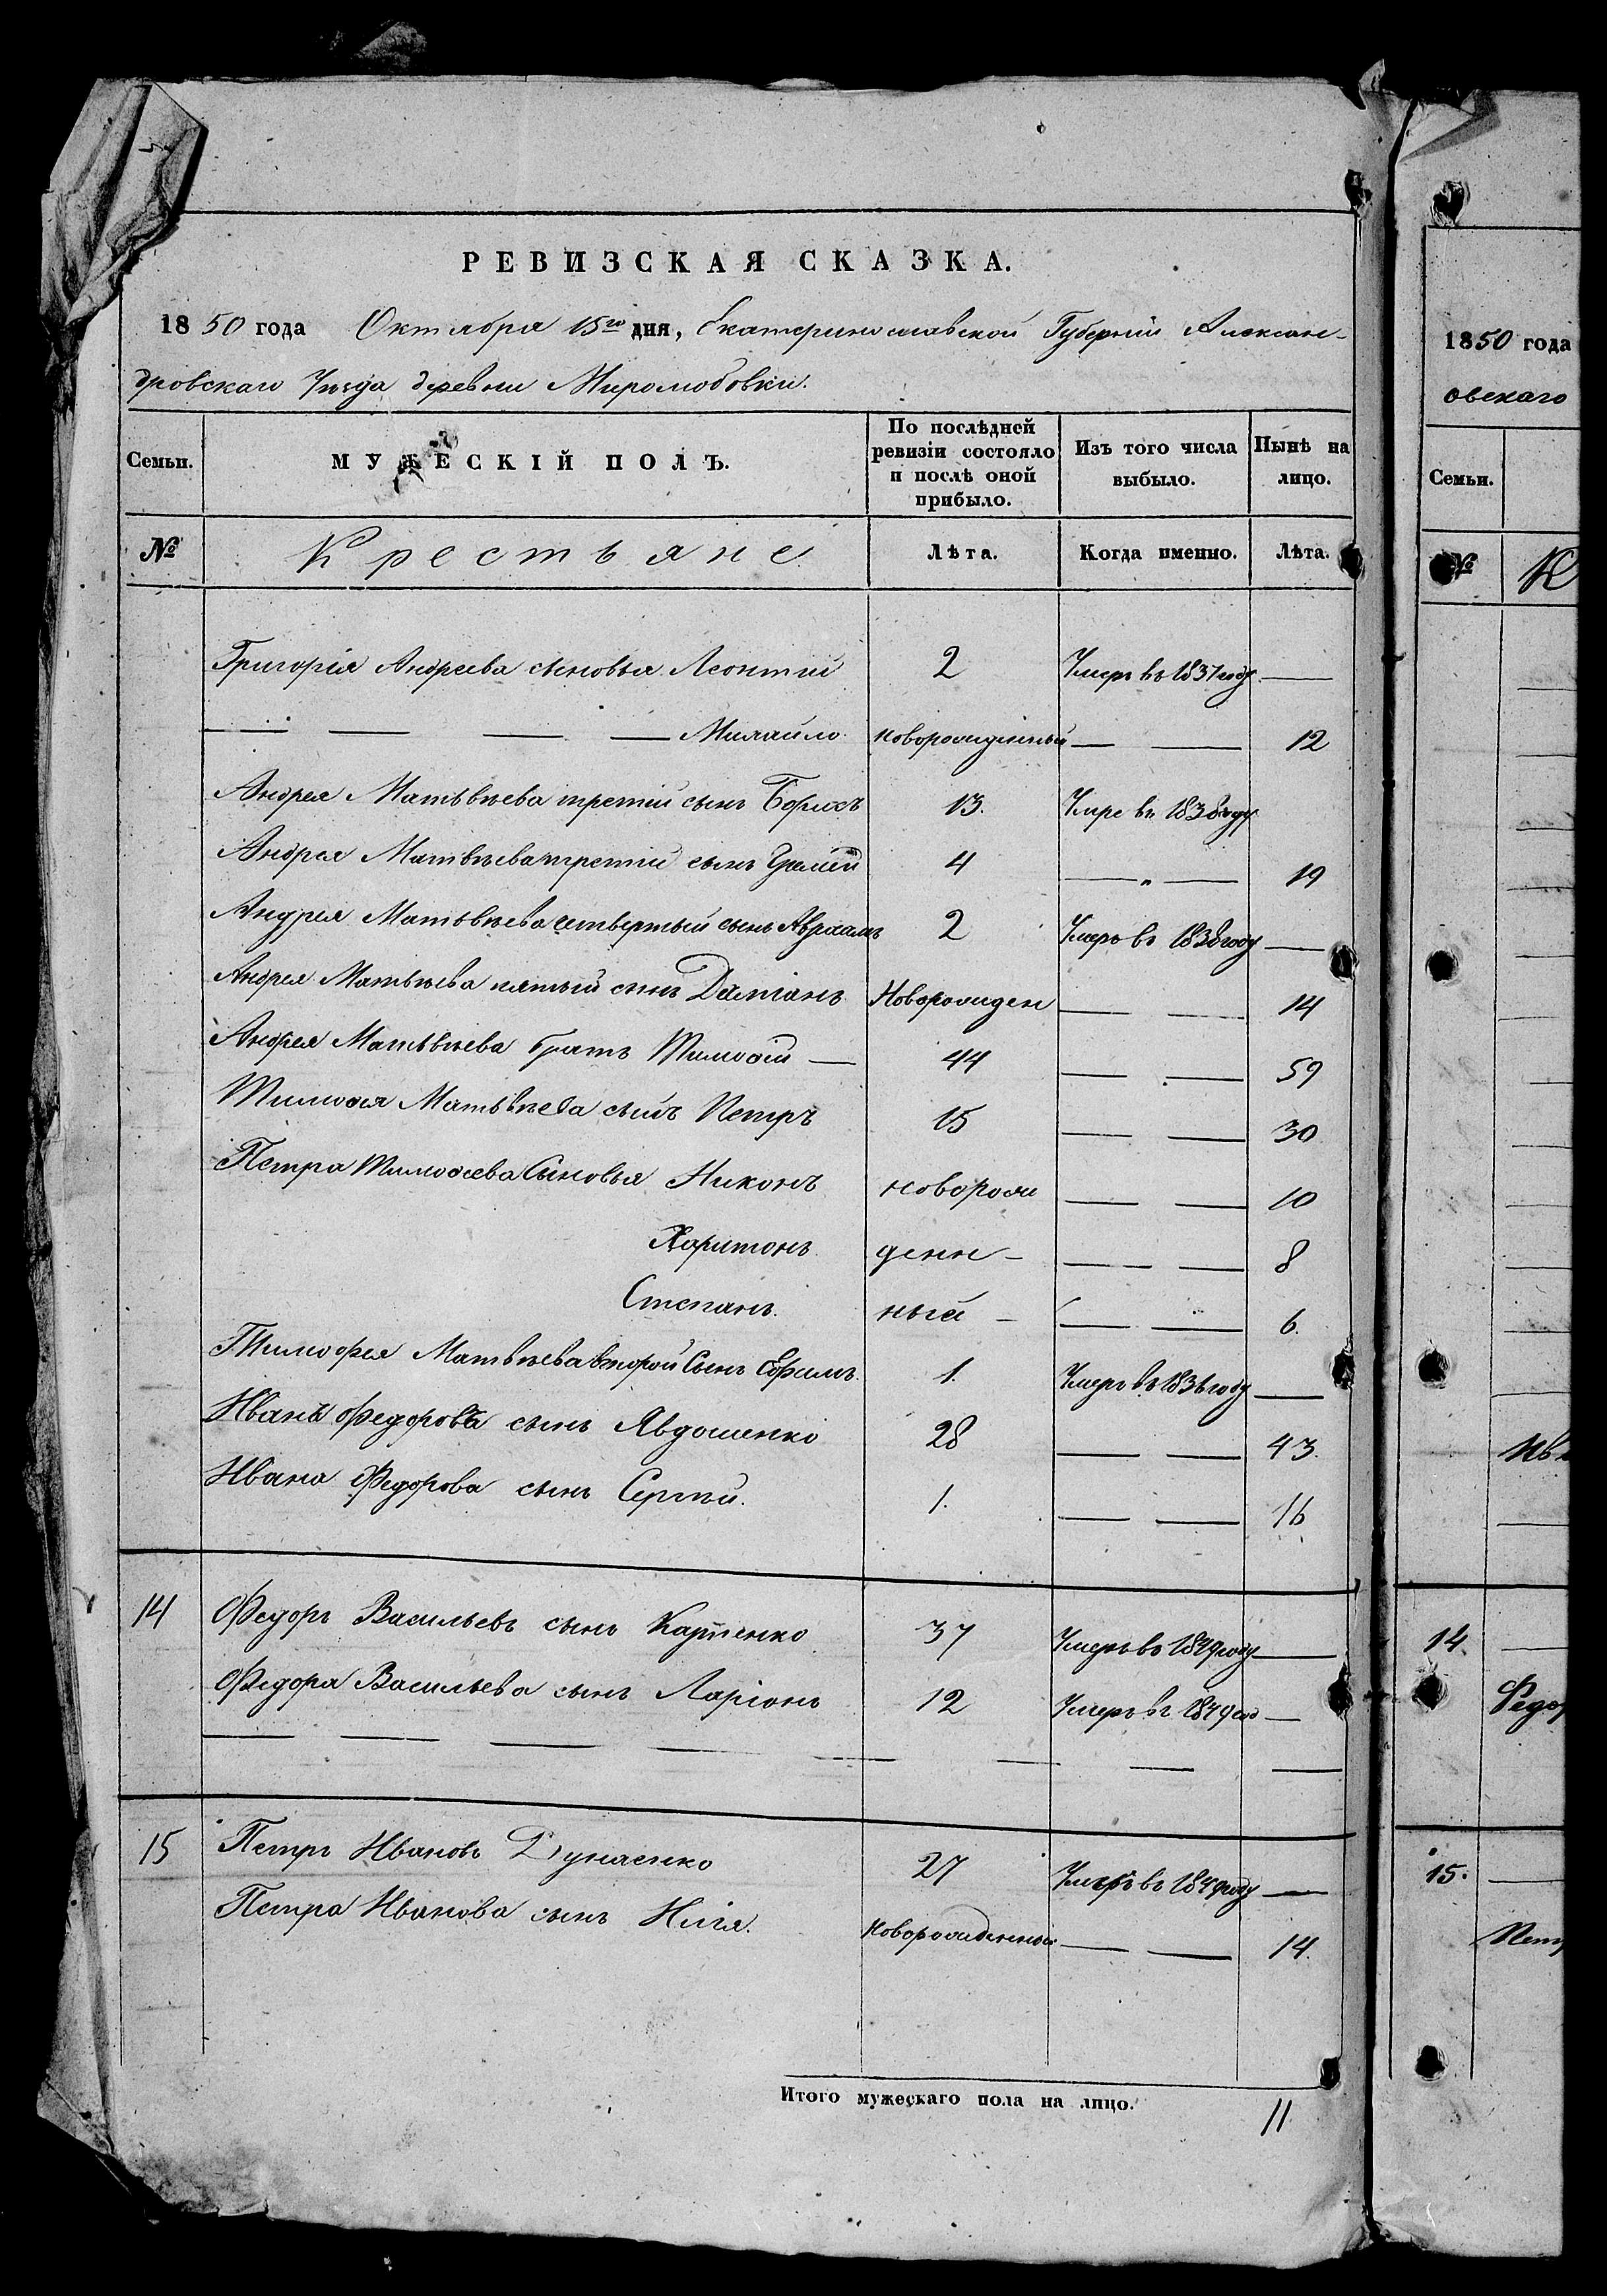 РЕВИЗСКАЯ СКАЗКА.
1850 года Октября 15го дня, Екатеринославской Губерніи Алексан-
дровскаго Уѣзда деревни Миролюбовки.
Семьи. МУЖЕСКІЙ ПОЛЪ. По послѣдней ревизіи состояло и послѣ оной прибыло. Изъ того числа выбыло. Нынѣ на лицо.
№ Крестьяне. Лѣта. Когда именно. Лѣта.
Григорія Андреева сыновья Леонтій 2 Умеръ въ 1837 году —
— — — — Михайло новорожденный — — 12
Андрея Матвѣева третій сынъ Борисъ 13. Умре въ 1838 году
Андрея Матвѣева третій сынъ 4 — „ — 19
Андрея Матвѣева четвертый сынъ Авраамъ 2 Умеръ въ 1838 году —
Андрея Матвѣева пятый сынъ Даміанъ Новорожден — — 14
Андрея Матвѣева братъ Тимоѳій — 44 — — 59
Тимоѳія Матвѣева сынъ Петръ 15 — — 30
Петра Тимоѳѣева Сыновья Никонъ новорож — — 10
Харитонъ. денн — — — 8
Степанъ. ный — — — 6.
Тимофея Матвѣева второй Сынъ Ефимъ. 1. Умеръ въ 1836 году —
Иванъ Федорова сынъ Явдошенко 28 — — 43.
Ивана Федорова сынъ Сергѣй. 1. — — 16
14 Федоръ Васильевъ сынъ Карпенко 37 Умеръ въ 1849 году —
Федора Васильева сынъ Ларіонъ 12 Умеръ въ 1849 год —
15 Петръ Ивановъ Дунаенко 27 Умеръ въ 1849 году —
Петра Иванова сынъ Илія. Новорожденный — — 14.
Итого мужескаго пола на лицо. 11
1850 года
овскаго
Семьи.
№ К
Ив
14. —
Федор
15. —
Пет